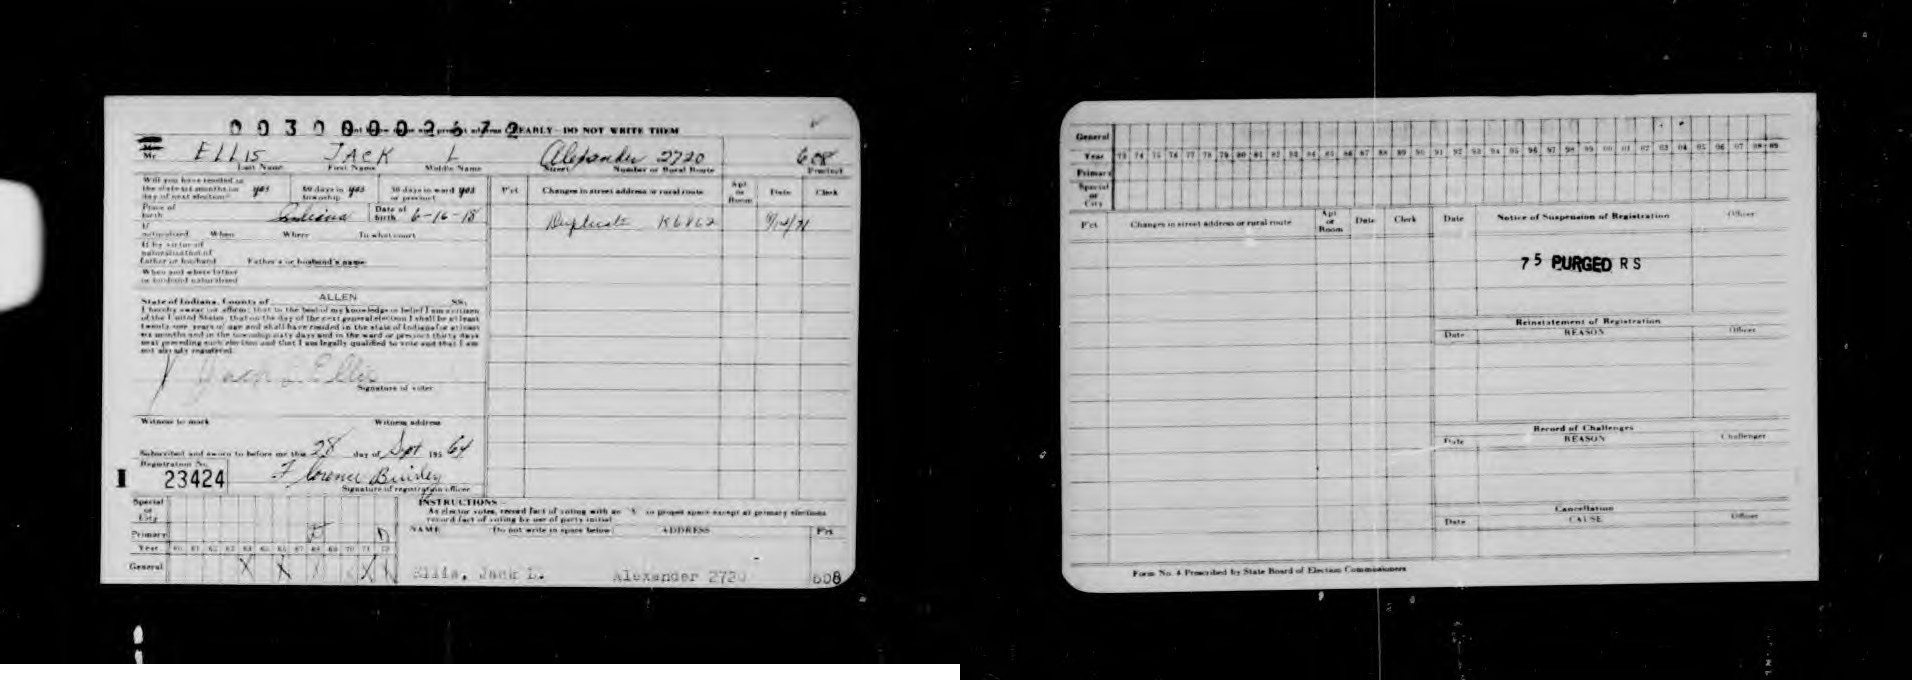 00300002672
CLEARLY - DO NOT WRITE THEM
Mr. ELLIS JACK L Alexander 2720 608
Last Name First Name Middle Name Street Number or Rural Route Precinct
Will you have resided in the state six months on day of next election? yes 60 days in township yes 30 days in ward or precinct yes
Pct Changes in street address or rural route Apt or Room Date Clerk
Place of birth Indiana Date of birth 6-16-18
Duplicate K6862 9/14/71
If naturalized When Where In what court
If by virtue of naturalization of father or husband Father's or husband's name
When and where father or husband naturalized
State of Indiana, County of ALLEN SS:
I hereby swear (or affirm) that to the best of my knowledge or belief I am a citizen
of the United States, that on the day of the next general election I shall be at least
twenty-one years of age and shall have resided in the state of Indiana for at least
six months and in the township sixty days and in the ward or precinct thirty days
next preceding such election and that I am legally qualified to vote and that I am
not already registered.
Jack L Ellis
Signature of voter
Witness to mark Witness address
Subscribed and sworn to before me this 28 day of Sept 195 64
Registration No.
I 23424 Florence
Signature of registration officer
Special or City
Primary
Year 60 61 62 63 64 65 66 67 68 69 70 71 72
General X X X X
INSTRUCTIONS -
As elector votes, record fact of voting with an "X" in proper space except at primary elections
record fact of voting by use of party initial
NAME (Do not write in space below) ADDRESS Pct
Ellis, Jack L. Alexander 2720 608
General
Year 73 74 75 76 77 78 79 80 81 82 83 84 85 86 87 88 89 90 91 92 93 94 95 96 97 98 99 00 01 02 03 04 05 06 07 08 09
Primary
Special or City
Pct Changes in street address or rural route Apt or Room Date Clerk
Date Notice of Suspension of Registration Officer
75 PURGED RS
Reinstatement of Registration
Date REASON Officer
Record of Challenges
Date REASON Challenger
Cancellation
Date CAUSE Officer
Form No. 4 Prescribed by State Board of Election Commissioners